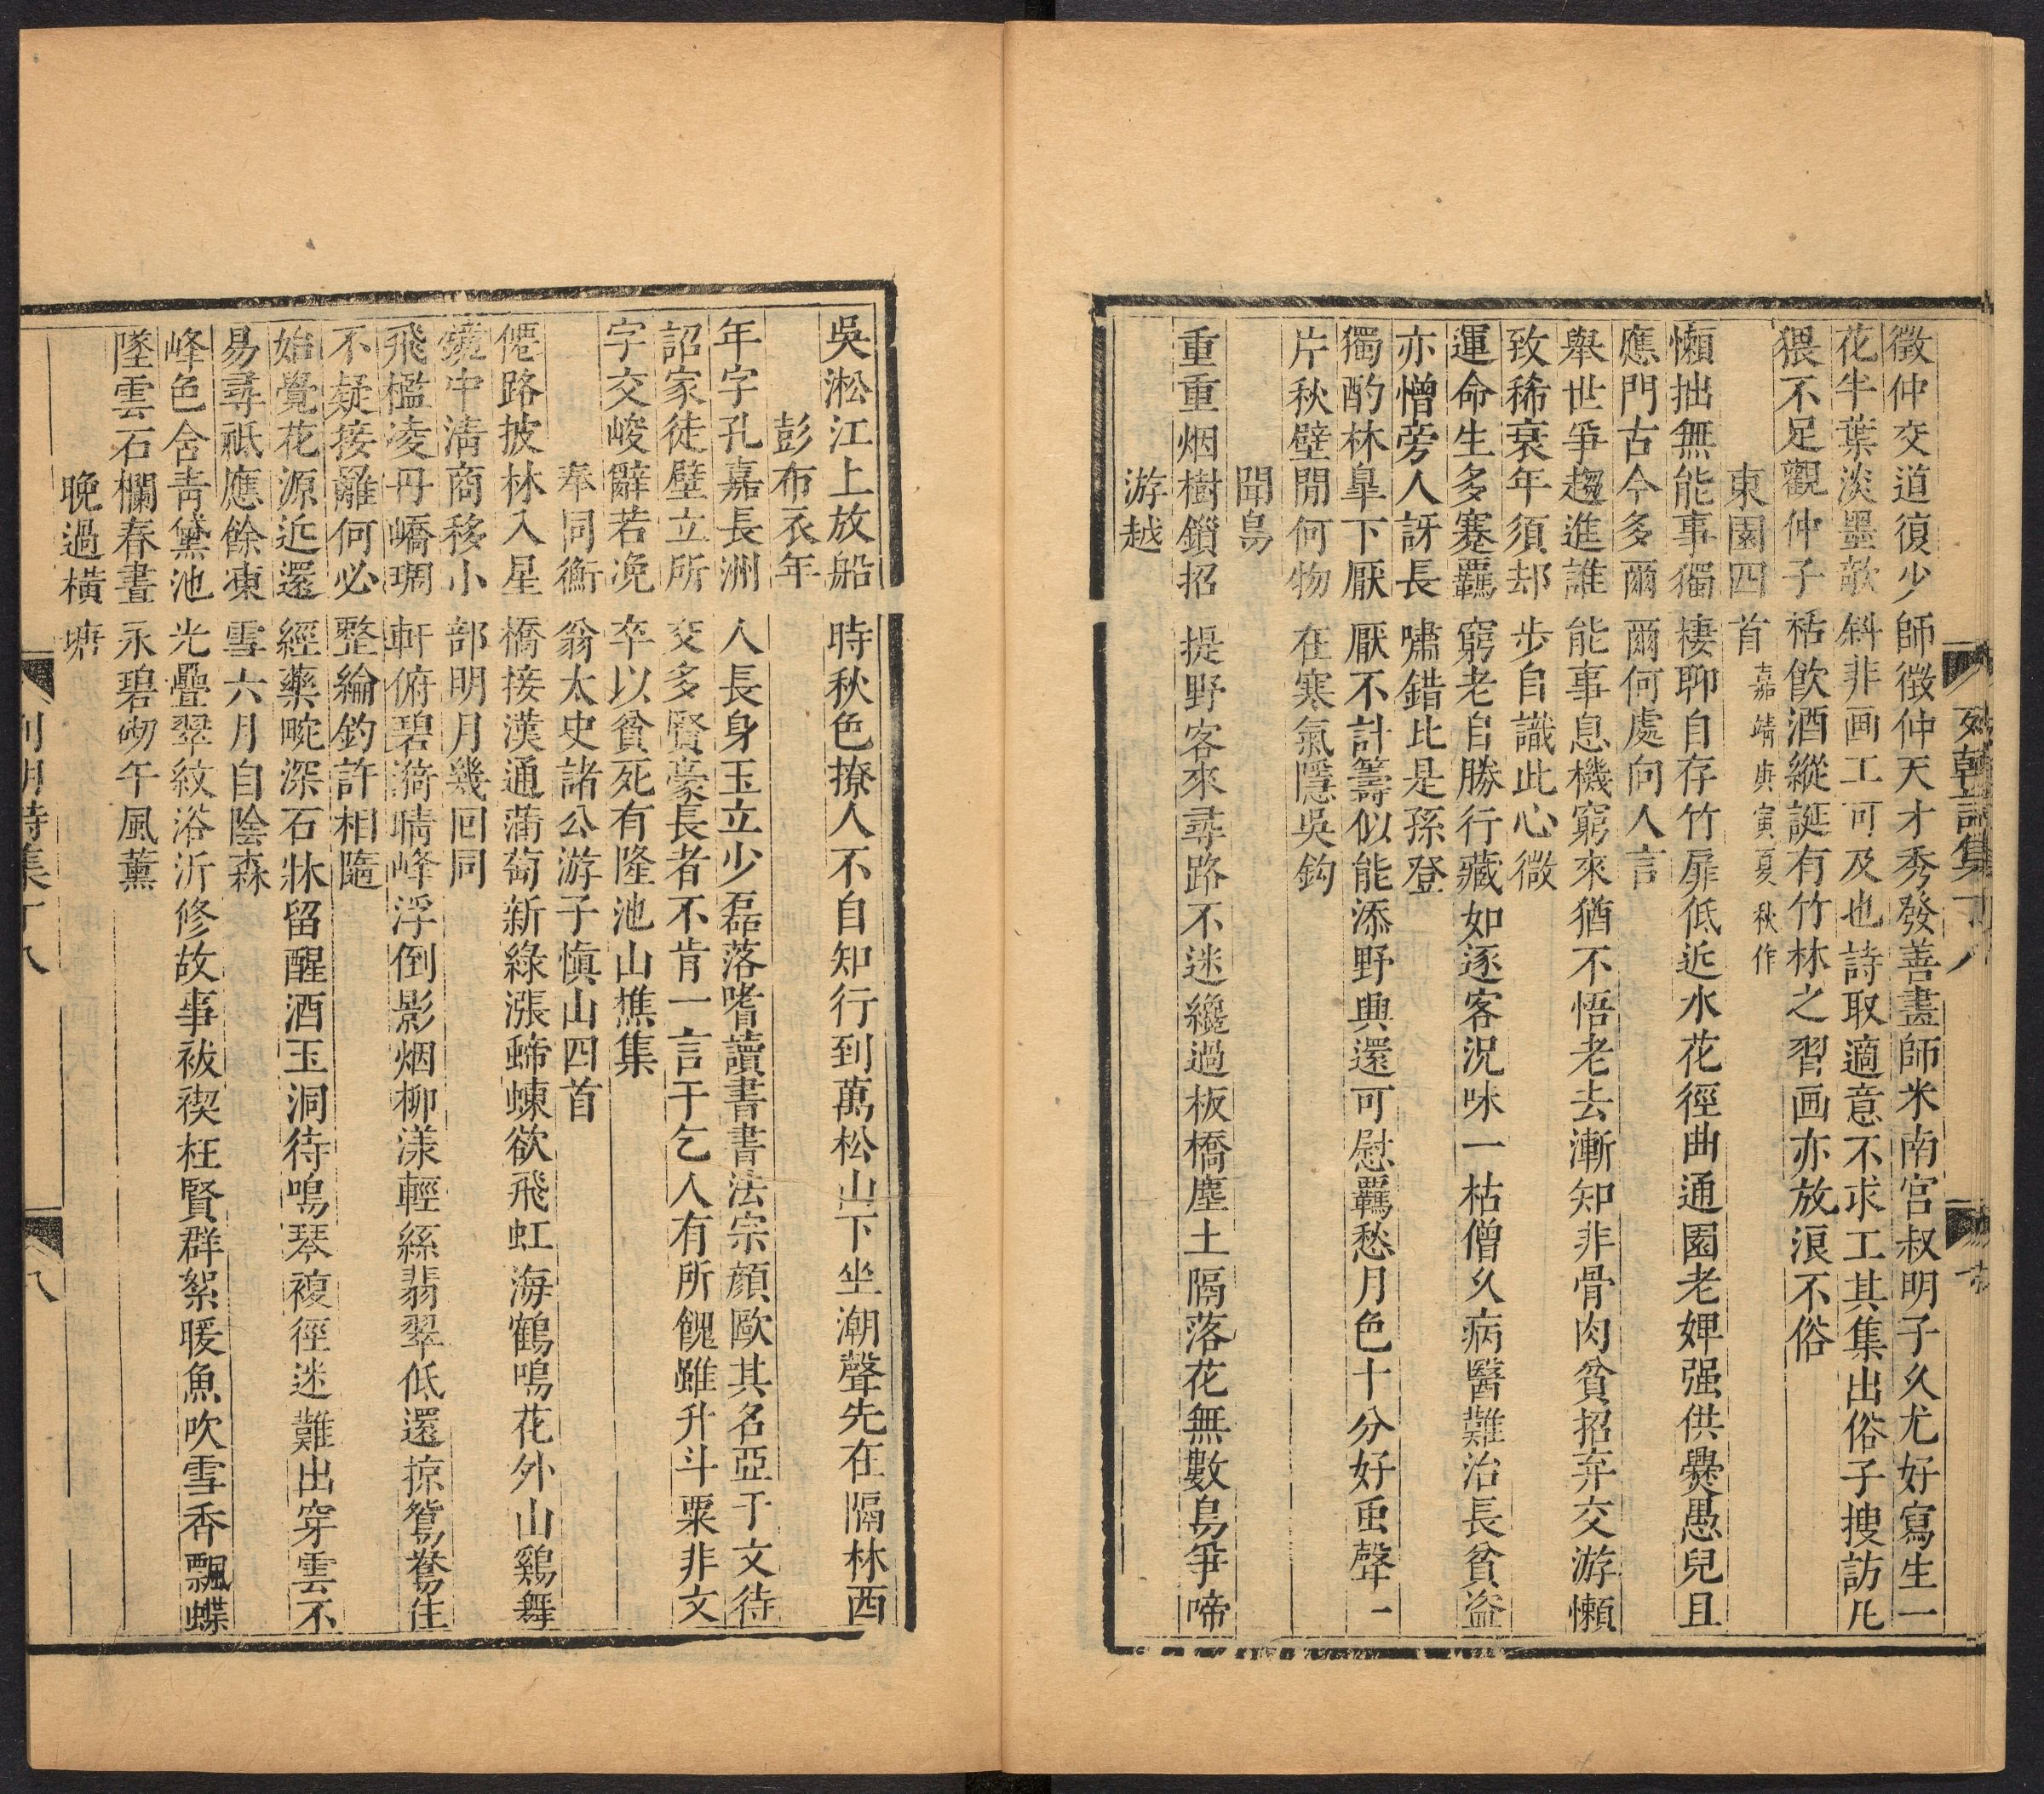 徵仲交道復少師徵仲天才秀發善畫師米南宫叔明子久尤好寫生一
花半葉淡墨欹斜非画工可及也詩取適意不求工其集出俗子搜訪凡
猥不足觀仲子秸飲酒縱誕有竹林之習画亦放浪不俗
東園四首嘉靖庚寅夏秋作
懶拙無能事獨棲聊自存竹扉低近水花徑曲通園老婢强供爨愚兒且
應門古今多爾爾何處向人言
舉世爭趨進誰能事息機窮來猶不悟老去漸知非骨肉貧招弃交游懶
致稀衰年須却步自識此心微
運命生多蹇羈窮老自勝行藏如逐客況味一枯僧久病醫難治長貧盜
亦憎旁人訝長嘯錯比是孫登
獨酌林臯下厭厭不計籌似能添野興還可慰羈愁月色十分好虫聲一
片秋壁閒何物在寒氣隱吳鈎
聞鳥
重重烟樹鎖招提野客來尋路不迷纔過板橋塵土隔落花無數鳥爭啼
游越
吳淞江上放船時秋色撩人不自知行到萬松山下坐潮聲先在隔林西
彭布衣年
年字孔嘉長洲人長身玉立少磊落嗜讀書書法宗顏歐其名亞于文待
詔家徒壁立所交多賢豪長者不肯一言干乞人有所餽雖升斗粟非文
字交峻辭若凂卒以貧死有隆池山樵集
奉同衡翁太史諸公游子愼山四首
僊路披林入星橋接漢通蒲萄新綠漲蝃蝀欲飛虹海鶴鳴花外山鷄舞
鏡中淸商移小部明月幾回同
飛檻凌丹嶠琱軒俯碧漪晴峰浮倒影烟柳漾輕絲翡翠低還掠鴛鴦住
不疑接䍦何必整綸釣許相隨
始覺花源近還經藥畹深石牀留醒酒玉洞待鳴琴複徑迷難出穿雲不
易尋祗應餘凍雪六月自陰森
峰色含靑黛池光疊翠紋浴沂修故事祓禊枉賢群絮暖魚吹雪香飄蝶
墜雲石欄春晝永碧砌午風薰
晚過橫塘